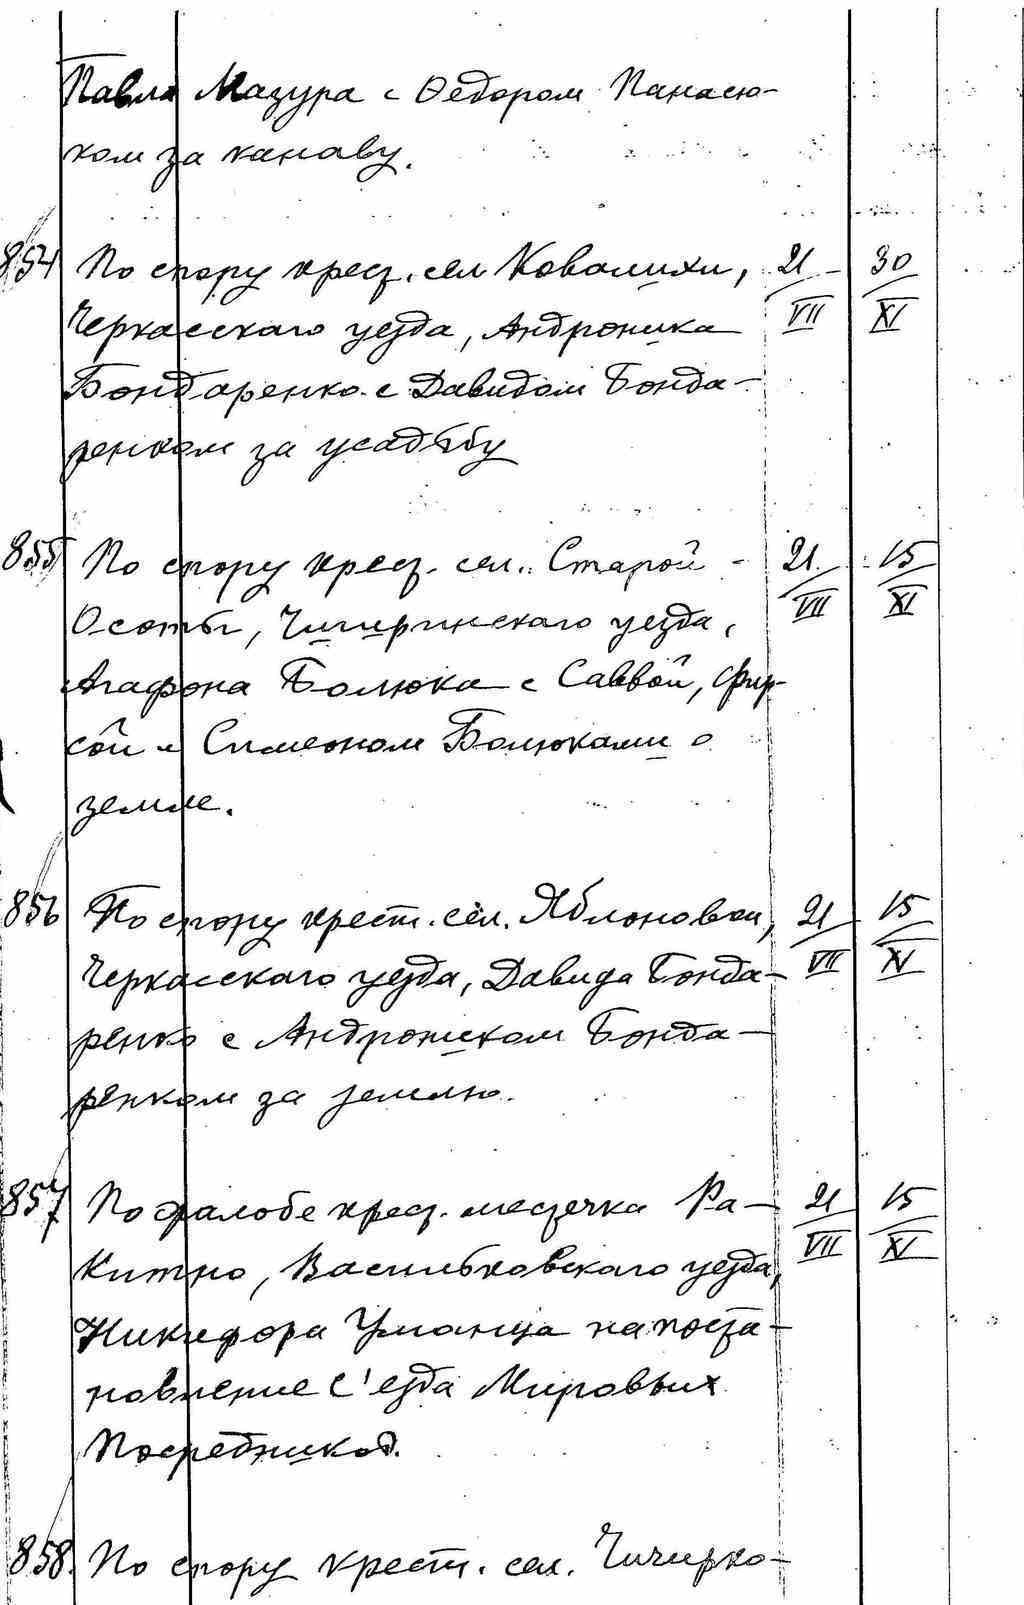 Павла Мазура с Федором Панасю-
ком за канаву.
854 По спору крест. сел Ковалихи, 21/VII 30/XI
Черкасскаго уезда, Андроника
Бондаренко с Давидом Бонда-
ренком за усадьбу
855 По спору крест. сел. Старой - 21/VII 15/XI
Осоты, Чигиринскаго уезда,
Агафона Болюка с Саввой, Фир-
сой и Симеоном Болюками о
земле.
856 По спору крест. сел. Яблоновки, 21/VII 15/XI
Черкасскаго уезда, Давида Бонда-
ренко с Андроником Бонда-
ренком за землю.
857 По жалобе крест. местечка Ра- 21/VII 15/XI
китно, Васильковскаго уезда,
Никифора Уманца на поста-
новление С'езда Мировых
Посредников.
858. По спору крест. сел. Чичирко-